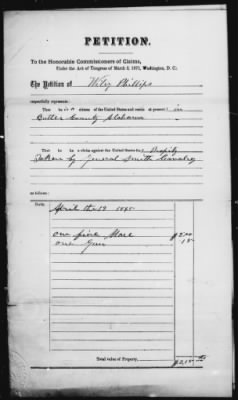 PETITION.
To the Honorable Commissioners of Claims,
Under the Act of Congress of March 3, 1871, Washington, D. C.:
The Petition of Wiley Phillips
respectfully represents:
That he is a citizen of the United States and reside at present in
Butler County Alabama
That he has a claim against the United States for Property
Taken by General Smith Cavalry
as follows:
Date.
April the 19 1865
one fine Mare
one Gun
15
Total value of Property,